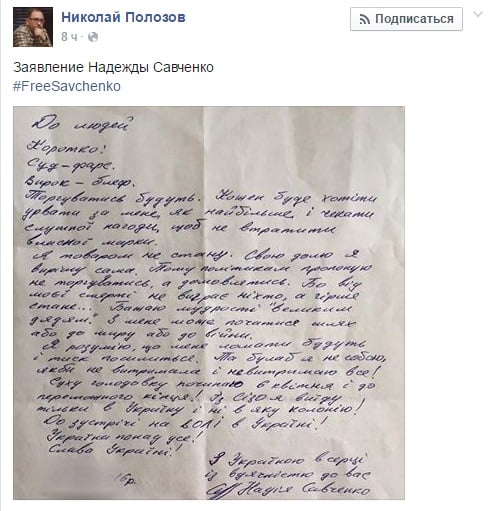 Николай Полозов
8 ч ·
Подписаться
Заявление Надежды Савченко
#FreeSavchenko
До людей
Коротко:
Суд-фарс.
Вирок-блеф.
Торгуватись будуть. Кошен буде хотіти
урвати за мене як найбільше, і чекати
слушної нагоди, щоб не втратити
власної марки.
Я товаром не стану. Свою долю я
вирішу сама. Тому політикам пропоную
не торгуватись, а домовлятись. Бо від
моєї смерті не виграє ніхто, а гірше
стане... Бажаю мудрості "великим
дядям". З мене може початися шлях
або до миру або до війни.
Я розумію, що мене ломати будуть
і тиск посилиться. Та була б я не собою,
якби не витримала і невитримаю все!
Суху голодовку починаю 6 квітня і до
переможного кінця! Із СІЗО я вийду
тільки в Україну і ні в яку колонію!
До зустрічі на ВОЛІ в Україні!
Україна понад усе!
Слава Україні!
З Україною в серці
із вдячністю до вас
Надія Савченко
16р.